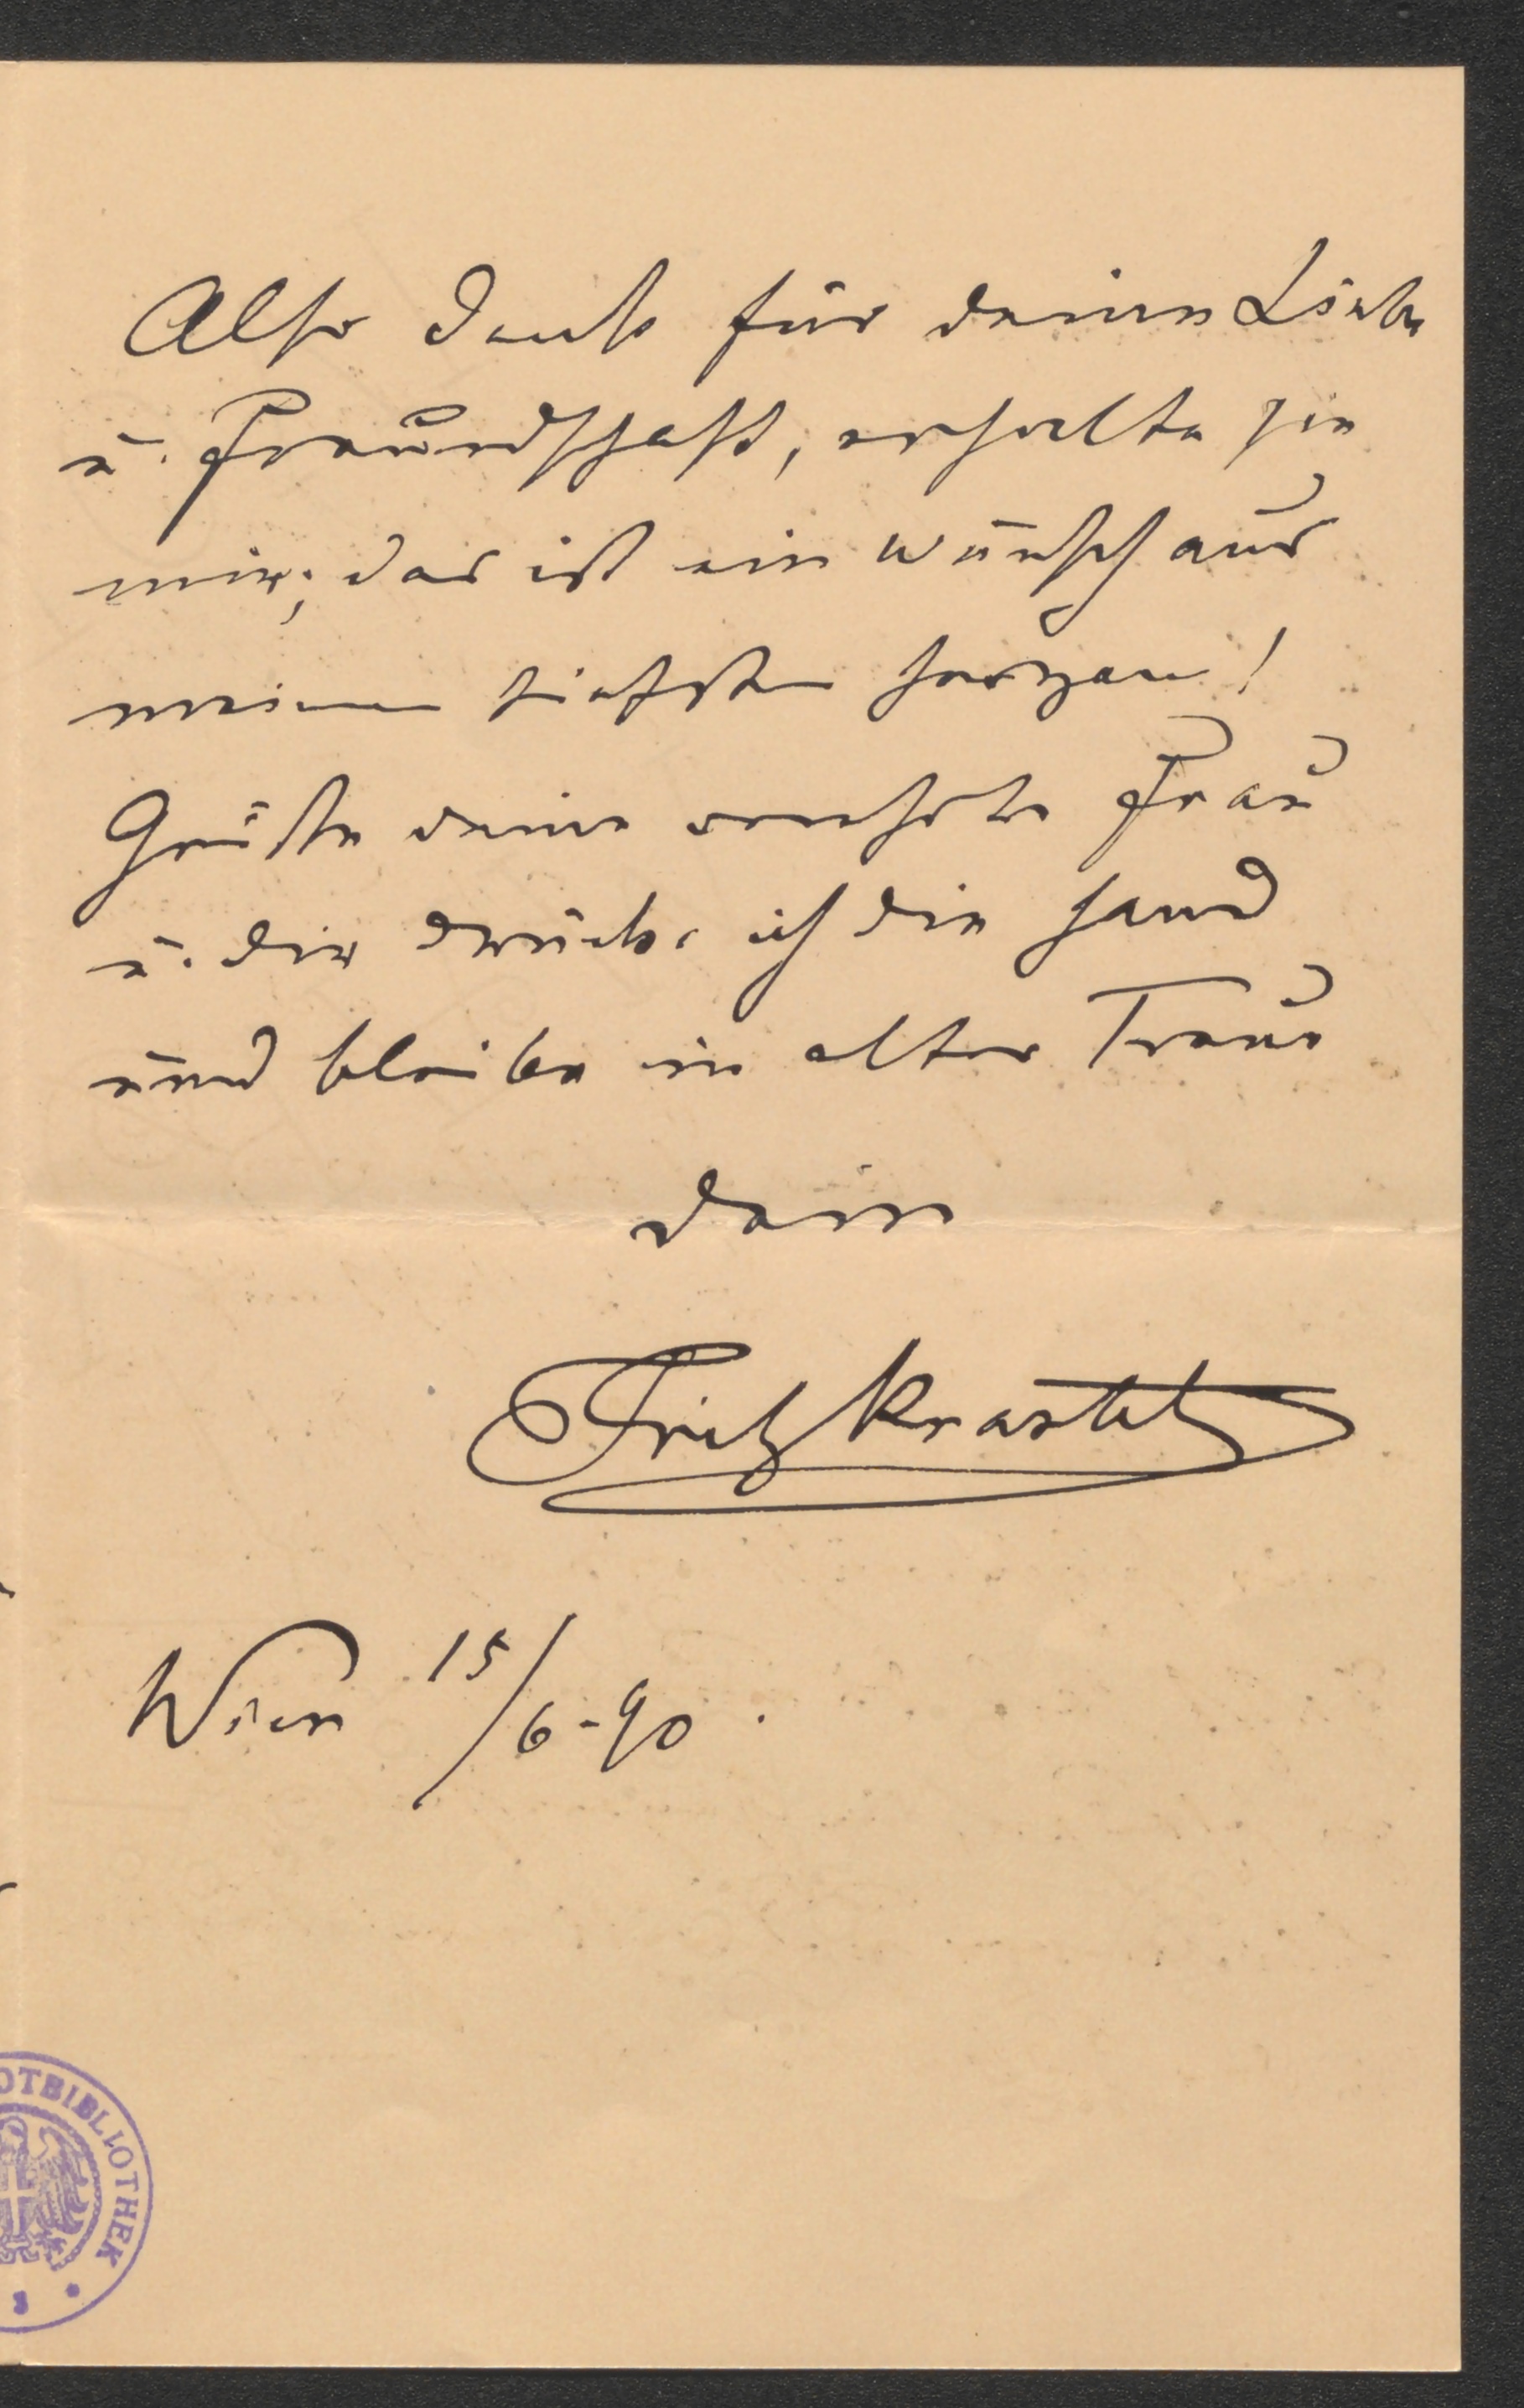 Also Dank für deine Liebe
u. Freundschaft, erhalte sie
mir; das ist ein Wunsch aus
meinem tiefsten Herzen!
Grüße deine verehrte Frau
u. dir drücke ich die Hand
und bleibe in alter Treue
Dein
Fritz Krastel
Wien 15/6-90.
OTBIBLIOTHEK